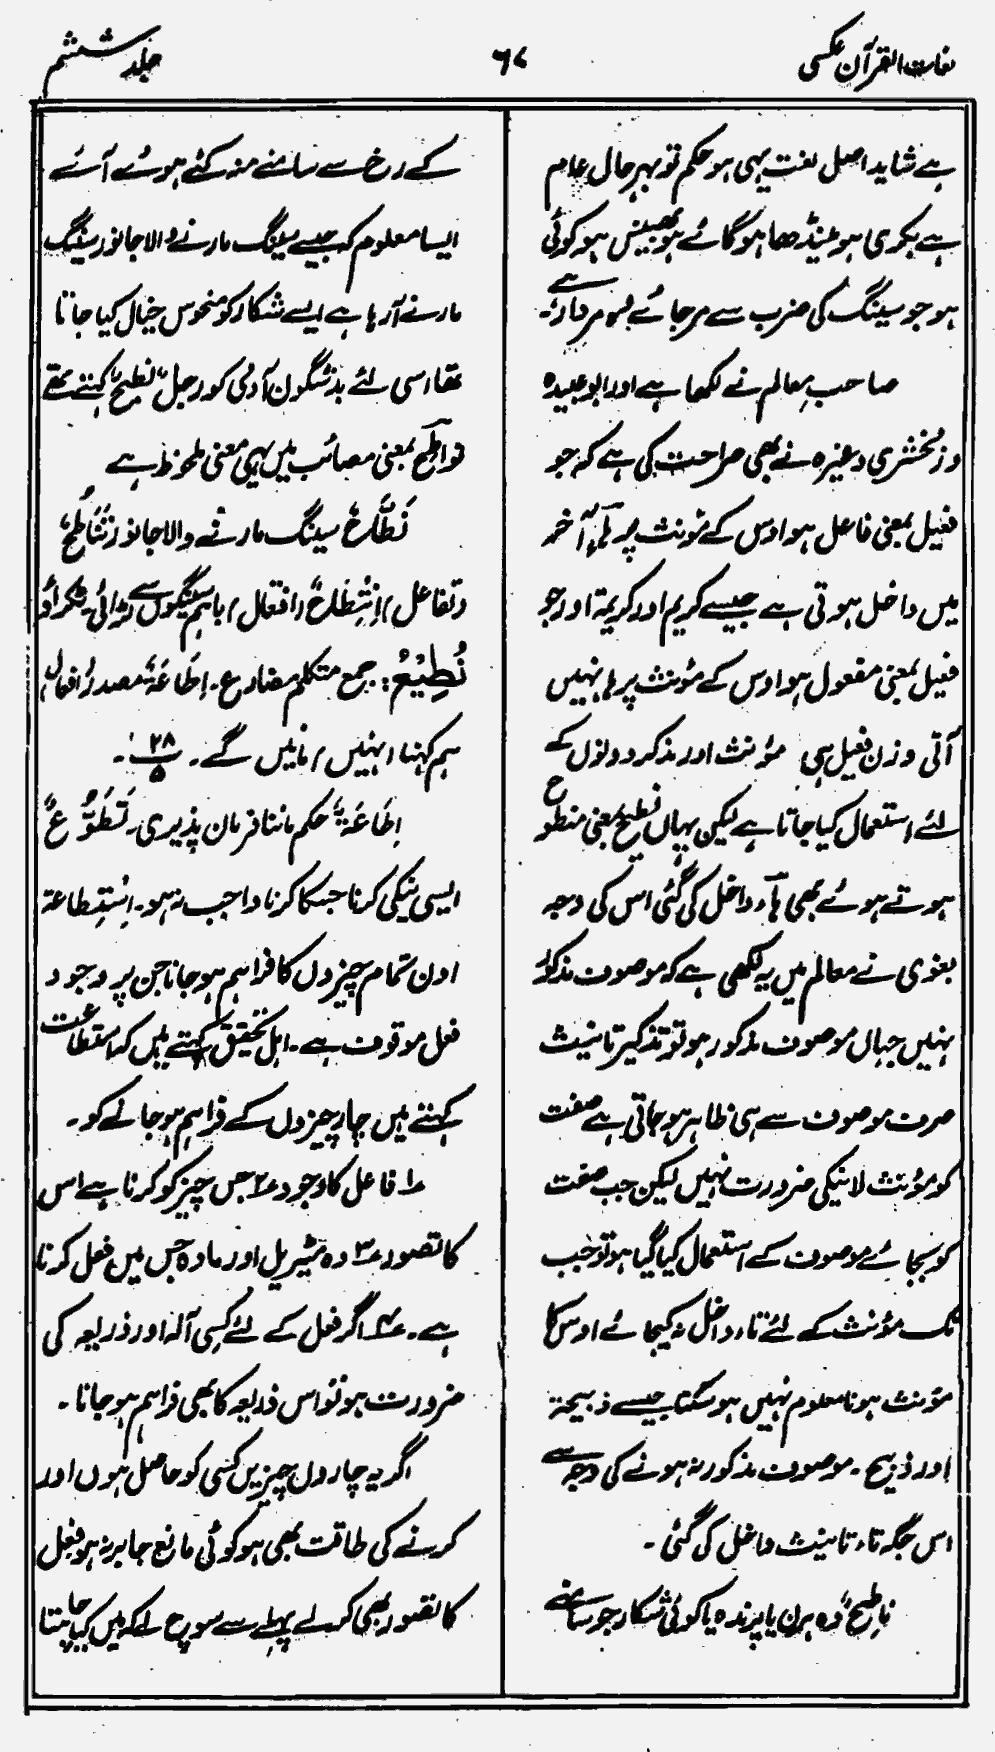 لغات القرآن عکسی
۶۷
جلد ششم
ہے شاید اصل لغت یہی ہو حکم تو بہر حال عام
ہے بکری ہو مینڈھا ہو گائے ہو بھینس ہو کوئی
ہو جو سینگ کی ضرب سے مر جائے بس مردار ہے۔
صاحب معالم نے لکھا ہے اور ابو عبیدہ
و زمخشری وغیرہ نے بھی صراحت کی ہے کہ جو
فعیل بمعنی فاعل ہو اوس کے مؤنث پر ہاء آخر
میں داخل ہوتی ہے جیسے کریم اور کریمۃ اور جو
فعیل بمعنی مفعول ہو اوس کے مؤنث پر ہا نہیں
آتی وزن فعیل ہی مؤنث اور مذکر دونوں کے
لئے استعمال کیا جاتا ہے لیکن یہاں نطیح بمعنی منطوح
ہوتے ہوئے بھی ہاء داخل کی گئی اس کی وجہ
بغوی نے معالم میں یہ لکھی ہے کہ موصوف مذکور
نہیں جہاں موصوف مذکور ہو تو تذکیر تانیث
صرف موصوف سے ہی ظاہر ہو جاتی ہے صفت
کو مؤنث لانیکی ضرورت نہیں لیکن جب صفت
کو بجائے موصوف کے استعمال کیا گیا ہو تو جب
تک مؤنث کے لئے تاء داخل نہ کیجائے اوس کا
مؤنث ہونا معلوم نہیں ہو سکتا جیسے ذبیحۃ
اور ذبیح۔ موصوف مذکور نہ ہونے کی وجہ سے
اس جگہ تاء تانیث داخل کی گئی۔
ناطِیح وہ ہرن یا پرندہ یا کوئی شکار جو سامنے
کے رخ سے سامنے منہ کئے ہوئے آئے
ایسا معلوم کہ جیسے سینگ مارنے والا جانور سینگ
مارنے آرہا ہے ایسے شکار کو منحوس خیال کیا جاتا
تھا اسی لئے بدشگون آدمی کو رجل نطیح کہتے تھے
نواطح بمعنی مصائب میں یہی معنی ملحوظ ہے
نَطَّاحٌ سینگ مارنے والا جانور تَنَاطُحٌ
(تفاعل) اِنْتِطَاحٌ (افتعال) باہم سینگوں سے لڑائی۔ ٹکراؤ
نُطِیْعُ: جمع متکلم مضارع۔ اِطَاعَۃٌ مصدر (افعال)
ہم کہنا (نہیں) مانیں گے۔ ۲۸/۵۔
اِطَاعَۃٌ حکم ماننا فرمان پذیری۔ تَطَوُّعٌ
ایسی نیکی کرنا جسکا کرنا واجب نہ ہو۔ اِسْتِطاعۃ
اون تمام چیزوں کا فراہم ہو جانا جن پر وجود
فعل موقوف ہے۔ اہل تحقیق کہتے ہیں کہ استطاعت
کہتے ہیں چار چیزوں کے فراہم ہو جانے کو۔
۱؎ فاعل کا وجود ۲؎ جس چیز کو کرنا ہے اس
کا تصور ۳؎ وہ مٹیریل اور مادہ جس میں فعل کرنا
ہے۔ ۴؎ اگر فعل کے لئے کسی آلہ اور ذریعہ کی
ضرورت ہو تو اس ذریعہ کا بھی فراہم ہو جانا۔
اگر یہ چاروں چیزیں کسی کو حاصل ہوں اور
کرنے کی طاقت بھی ہو کوئی مانع جابر نہ ہو فعل
کا تصور بھی کر لے پہلے سے سوچ لے کہ میں کیا چاہتا